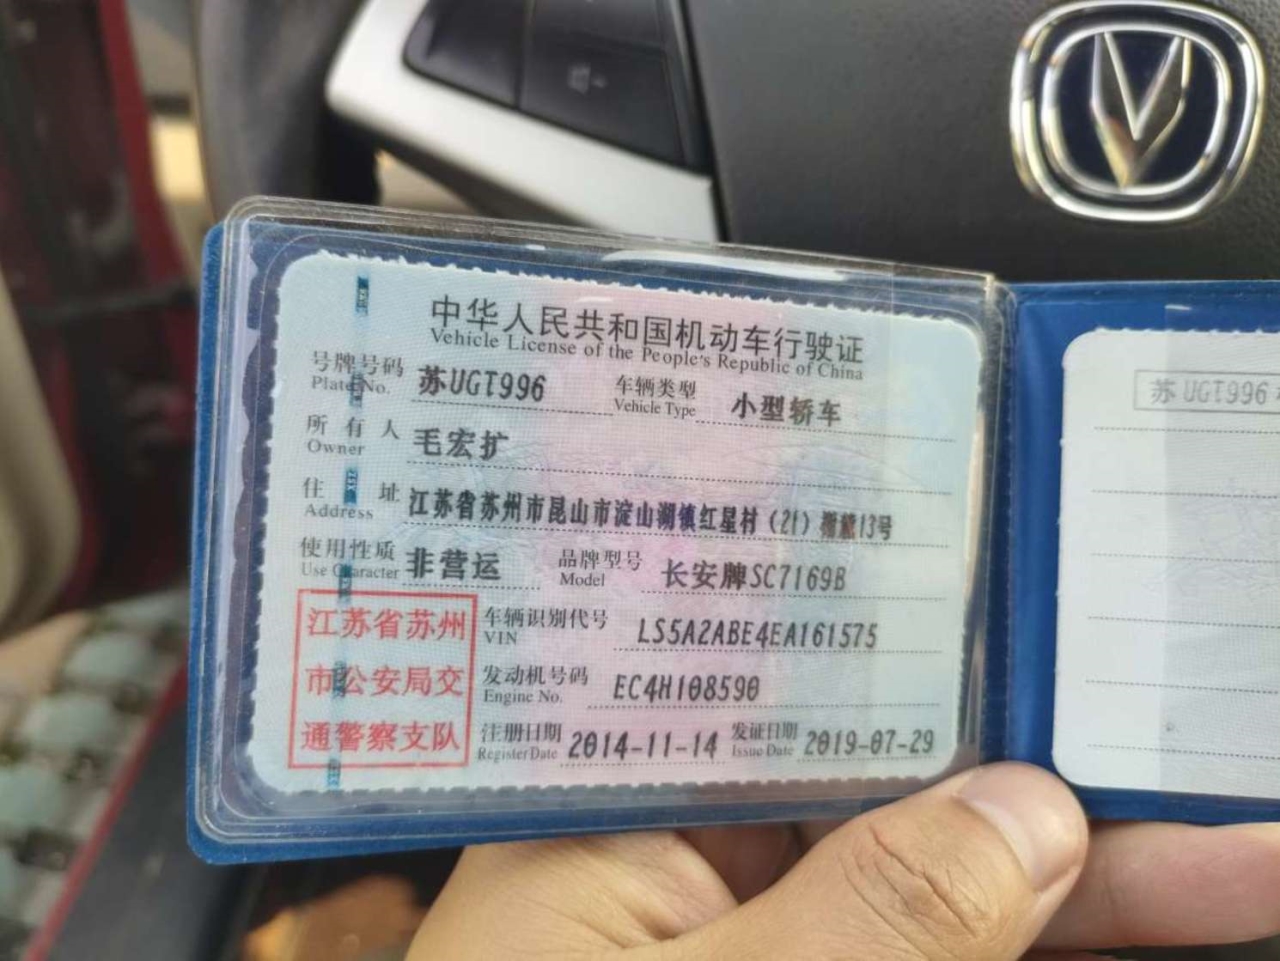 中华人民共和国机动车行驶证
Vehicle License of the People's Republic of China
号牌号码 苏UGT996 车辆类型 小型轿车
Plate No. Vehicle Type
所有人 毛宏扩
Owner
住址 江苏省苏州市昆山市淀山湖镇红星村（21）13号
Address
使用性质 非营运 品牌型号 长安牌SC7169B
Use Character Model
江苏省苏州
市公安局交
通警察支队
车辆识别代号 LS5A2ABE4EA161575
VIN
发动机号码 EC4H108590
Engine No.
注册日期 2014-11-14 发证日期 2019-07-29
Register Date Issue Date
苏UGT996